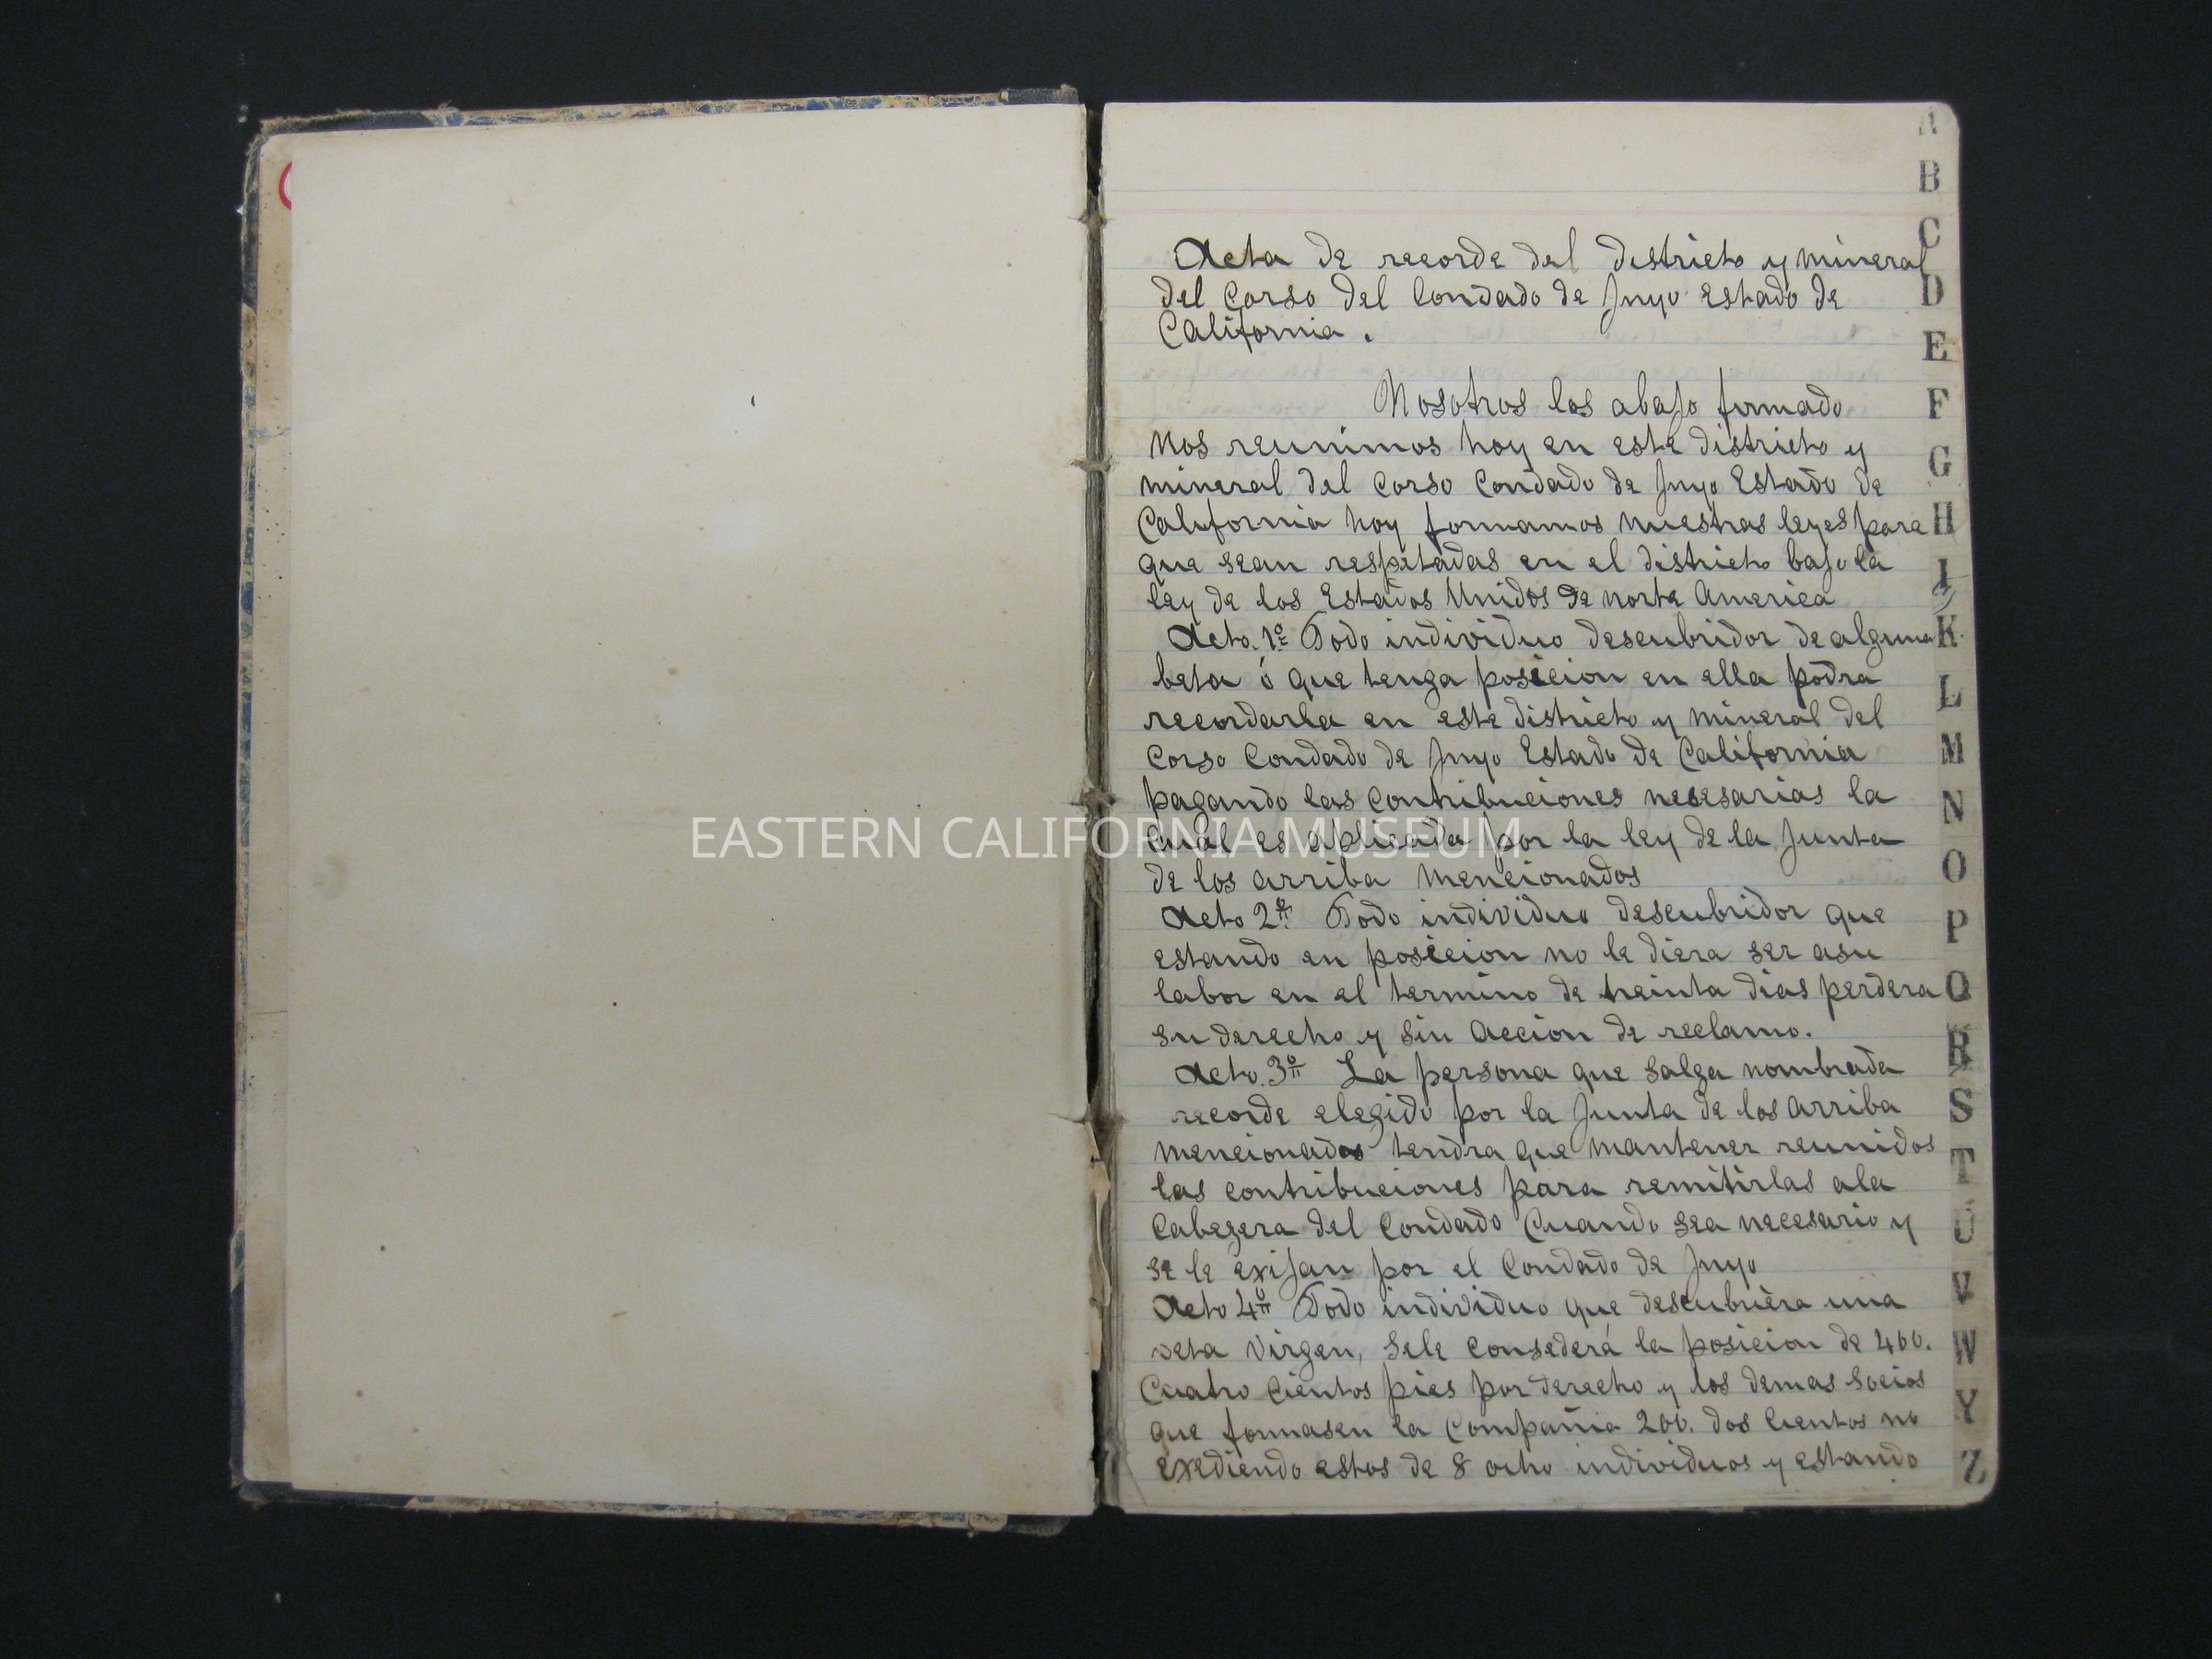 Acta de recorde del districto y mineral
del Corso del Condado de Inyo Estado de
California.
Nosotros los abajo firmado
nos reunimos hoy en este districto y
mineral del Corso Condado de Inyo Estado de
California hoy formamos nuestras leyes para
que sean respetadas en el districto bajo la
ley de los Estados Unidos de norte America
Acto. 1º Todo individuo descubridor de alguna
beta ó que tenga posicion en ella podra
recordarla en este districto y mineral del
Corso Condado de Inyo Estado de California
pagando las Contribuciones nesesarias la
cual es aplicada por la ley de la Junta
de los arriba mencionados
Acto 2º Todo individuo descubridor que
estando en posicion no le diera ser asu
labor en el termino de treinta dias perdera
su derecho y sin accion de reclamo.
Acto. 3º La persona que salga nombrada
recorde elegido por la Junta de los arriba
mencionados tendra que mantener reunidos
las contribuciones para remitirlas ala
Cabezera del Condado Cuando sea necesario y
se le exijan por el Condado de Inyo
Acto 4º Todo individuo que descubriera una
veta Virgen, sele consederá la posicion de 400.
Cuatro Cientos pies por derecho y los demas socios
que formasen la Compañia 200. dos Cientos no
exediendo estos de 8 ocho individuos y estando
A
B
C
D
E
F
G
H
I
J
K
L
M
N
O
P
Q
R
S
T
U
V
W
Y
Z
EASTERN CALIFORNIA MUSEUM